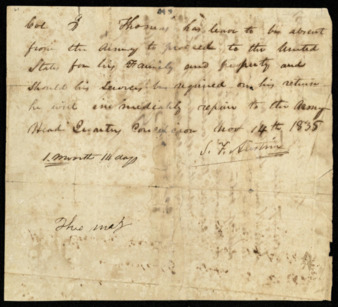 Col. Thomas has leave to be absent
from the Army to proceed to the United
States for his Family and property and
should his Services be required on his return
he will immediately repair to the Army
Head Quarters Nov 14th 1835
1 month 14 days S. F. Austin
Thomas